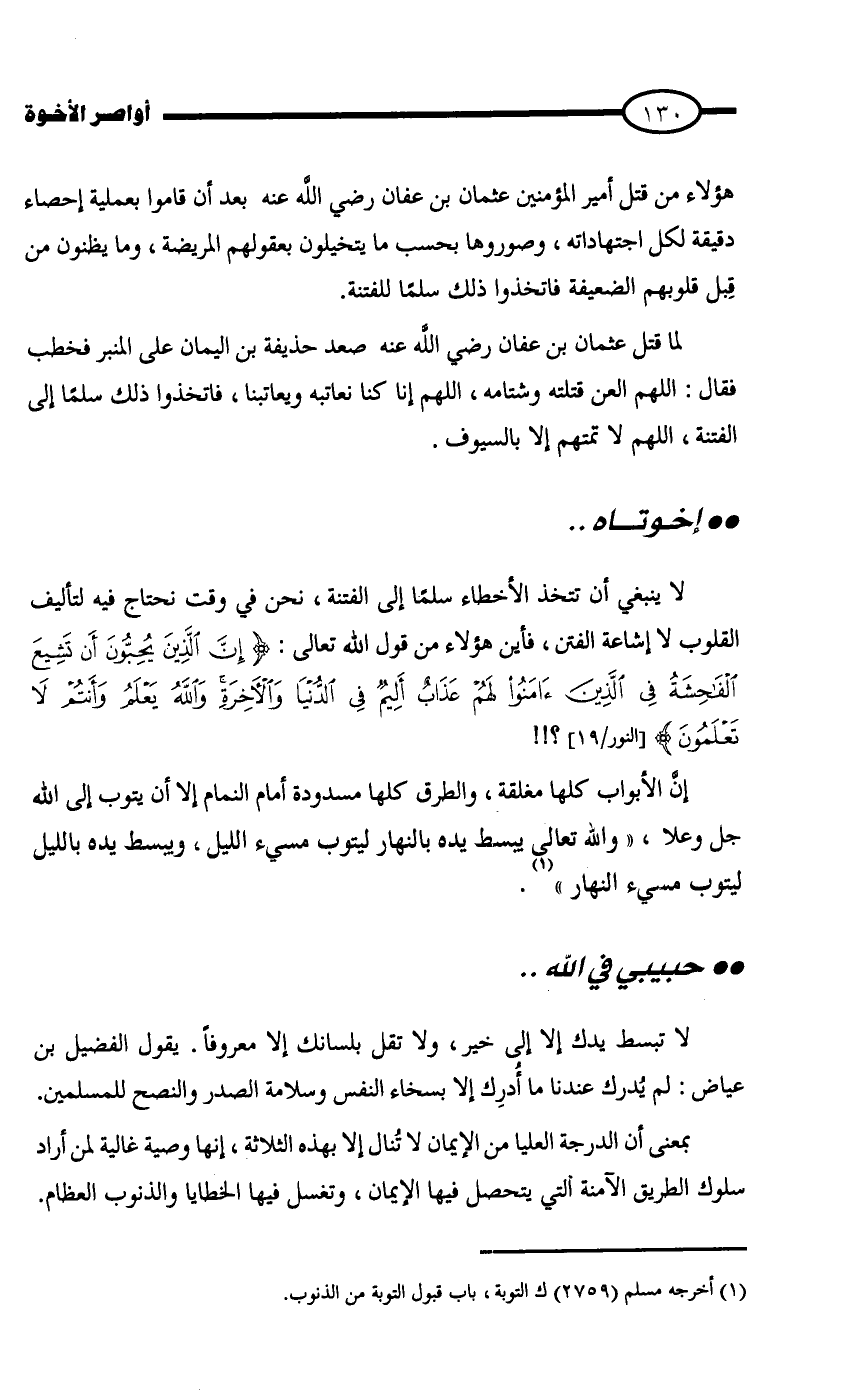 ١٣٠ أواصر الأخوة
هؤلاء من قتل أمير المؤمنين عثمان بن عفان رضي اللَّه عنه بعد أن قاموا بعملية إحصاء
دقيقة لكل اجتهاداته ، وصوروها بحسب ما يتخيلون بعقولهم المريضة ، وما يظنون من
قِبل قلوبهم الضعيفة فاتخذوا ذلك سلمًا للفتنة.
لما قتل عثمان بن عفان رضي اللَّه عنه صعد حذيفة بن اليمان على المنبر فخطب
فقال : اللهم العن قتلته وشتامه ، اللهم إنا كنا نعاتبه ويعاتبنا ، فاتخذوا ذلك سلمًا إلى
الفتنة ، اللهم لا تمتهم إلا بالسيوف .
●● إخـوتـــاه ..
لا ينبغي أن تتخذ الأخطاء سلمًا إلى الفتنة ، نحن في وقت نحتاج فيه لتأليف
القلوب لا إشاعة الفتن ، فأين هؤلاء من قول الله تعالى : ﴿ إِنَّ ٱلَّذِينَ يُحِبُّونَ أَن تَشِيعَ
ٱلْفَٰحِشَةُ فِى ٱلَّذِينَ ءَامَنُوا۟ لَهُمْ عَذَابٌ أَلِيمٌ فِى ٱلدُّنْيَا وَٱلْأَخِرَةِ ۚ وَٱللَّهُ يَعْلَمُ وَأَنتُمْ لَا
تَعْلَمُونَ ﴾ [النور/١٩] ؟!!
إنَّ الأبواب كلها مغلقة ، والطرق كلها مسدودة أمام النمام إلا أن يتوب إلى الله
جل وعلا ، « والله تعالى يبسط يده بالنهار ليتوب مسيء الليل ، ويبسط يده بالليل
ليتوب مسيء النهار »(١) .
●● حبيبي في الله ..
لا تبسط يدك إلا إلى خير ، ولا تقل بلسانك إلا معروفاً . يقول الفضيل بن
عياض : لم يُدرك عندنا ما أُدرِك إلا بسخاء النفس وسلامة الصدر والنصح للمسلمين.
بمعنى أن الدرجة العليا من الإيمان لا تُنال إلا بهذه الثلاثة ، إنها وصية غالية لمن أراد
سلوك الطريق الآمنة التي يتحصل فيها الإيمان ، وتغسل فيها الخطايا والذنوب العظام.
(١) أخرجه مسلم (٢٧٥٩) ك التوبة ، باب قبول التوبة من الذنوب.